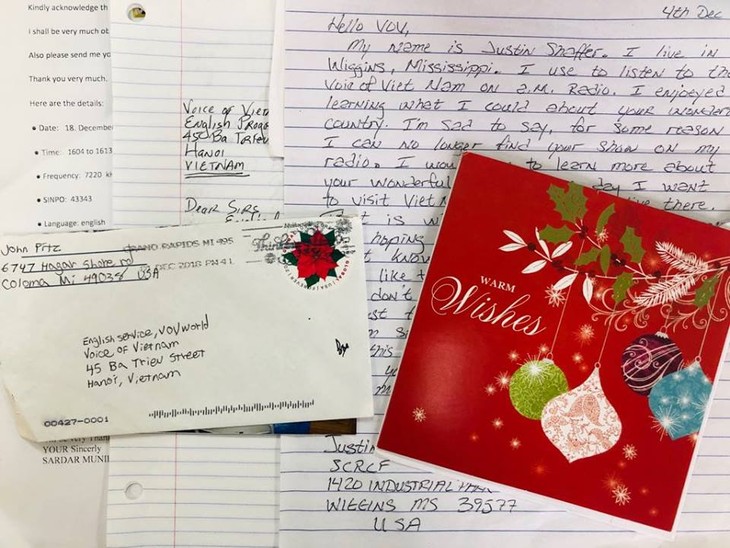 Kindly acknowledge th
I shall be very much ob
Also please send me yo
Thank you very much.
Here are the details:
Date: 18. December
Time: 1604 to 1613
Frequency: 7220 k
SINPO: 43343
Language: english
YOUR Sincerly
SARDAR MUNI
Voice of Viet
English Progr
45 Ba Trieu
Hanoi
VIETNAM
Dear Sirs
4th Dec
Hello VOV,
My name is Justin Shaffer. I live in
Wiggins, Mississippi. I use to listen to the
Voic of Viet Nam on a.m. Radio. I enjoeyed
learning what I could about your wonderf
country. I'm sad to say, for some reason
I can no longer find your show on my
radio. I wou to learn more about
your wonderful day I want
to visit Viet live there.
is wi
hoping
know
like t
don't
this
Justin
SCRCF
1420 INDUSTRIAL
WIGGINS MS 39577
USA
John Pitz
6747 Hagar Shore rd
Coloma Mi 49038 USA
GRAND RAPIDS MI 495
DEC 2018 PM 4 L
English service, VOVworld
Voice of Vietnam
45 Ba Trieu Street
Hanoi, Vietnam
00427-0001
WARM
Wishes